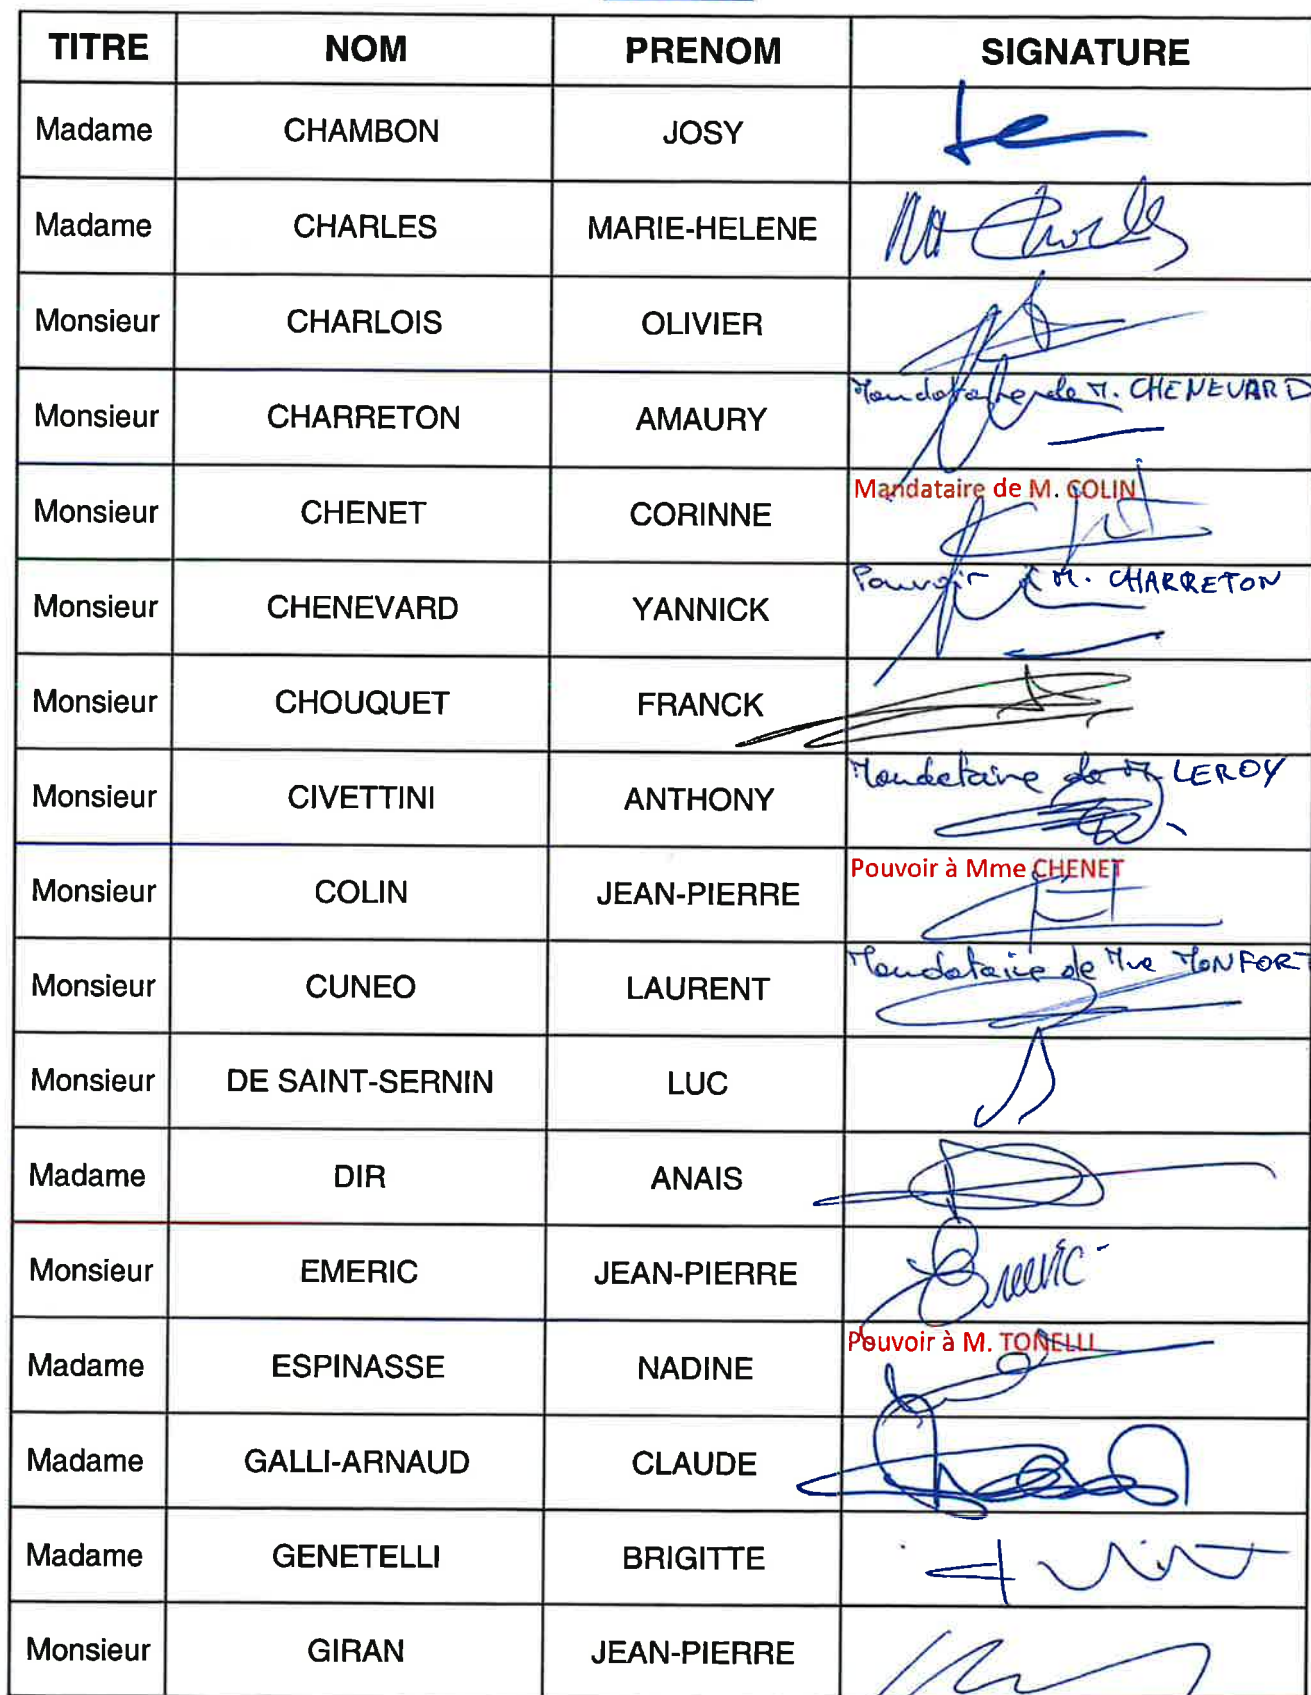 TITRE NOM PRENOM SIGNATURE
Madame CHAMBON JOSY
Madame CHARLES MARIE-HELENE MH Charles
Monsieur CHARLOIS OLIVIER
Monsieur CHARRETON AMAURY Mandataire de M. CHENEVARD
Monsieur CHENET CORINNE Mandataire de M. COLIN
Monsieur CHENEVARD YANNICK Pouvoir à M. CHARRETON
Monsieur CHOUQUET FRANCK
Monsieur CIVETTINI ANTHONY Mandataire de M. LEROY
Monsieur COLIN JEAN-PIERRE Pouvoir à Mme CHENET
Monsieur CUNEO LAURENT Mandataire de Mme MONFORT
Monsieur DE SAINT-SERNIN LUC
Madame DIR ANAIS
Monsieur EMERIC JEAN-PIERRE Emeric
Madame ESPINASSE NADINE Pouvoir à M. TONELLI
Madame GALLI-ARNAUD CLAUDE
Madame GENETELLI BRIGITTE
Monsieur GIRAN JEAN-PIERRE